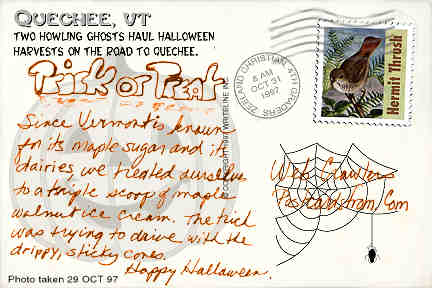 QUECHEE, VT
TWO HOWLING GHOSTS HAUL HALLOWEEN
HARVESTS ON THE ROAD TO QUECHEE.
Trick or Treat
Since Vermont is known
for its maple sugar and it
dairies, we treated ourselves
to a triple scoop of maple
walnut ice cream. The trick
was trying to drive with the
drippy, sticky cones.
Happy Halloween.
Photo taken 29 OCT 97
COPYRIGHT 1997 WRITELINE INC.
ZEELAND CHRISTIAN 4TH GRADERS
8 AM
OCT 31
1997
Hermit Thrush
Web Crawlers
Postcards from, Com